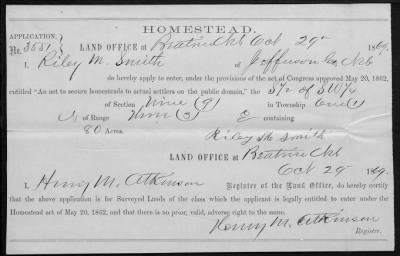 HOMESTEAD.
APPLICATION. No. 3551
LAND OFFICE at Beatrice Neb Oct 29 1869.
I, Riley M. Smith of Jefferson Co Neb
do hereby apply to enter, under the provisions of the act of Congress approved May 20, 1862,
entitled "An act to secure homesteads to actual settlers on the public domain," the S½ of SW¼
of Section Nine (9) in Township One (1)
N of Range (3) E containing
80 Acres.
Riley M Smith
LAND OFFICE at Beatrice Neb
Oct 29 1869.
I, Henry M. Atkinson Register of the Land Office, do hereby certify
that the above application is for Surveyed Lands of the class which the applicant is legally entitled to enter under the
Homestead act of May 20, 1862, and that there is no prior, valid, adverse right to the same.
Henry M. Atkinson
Register.